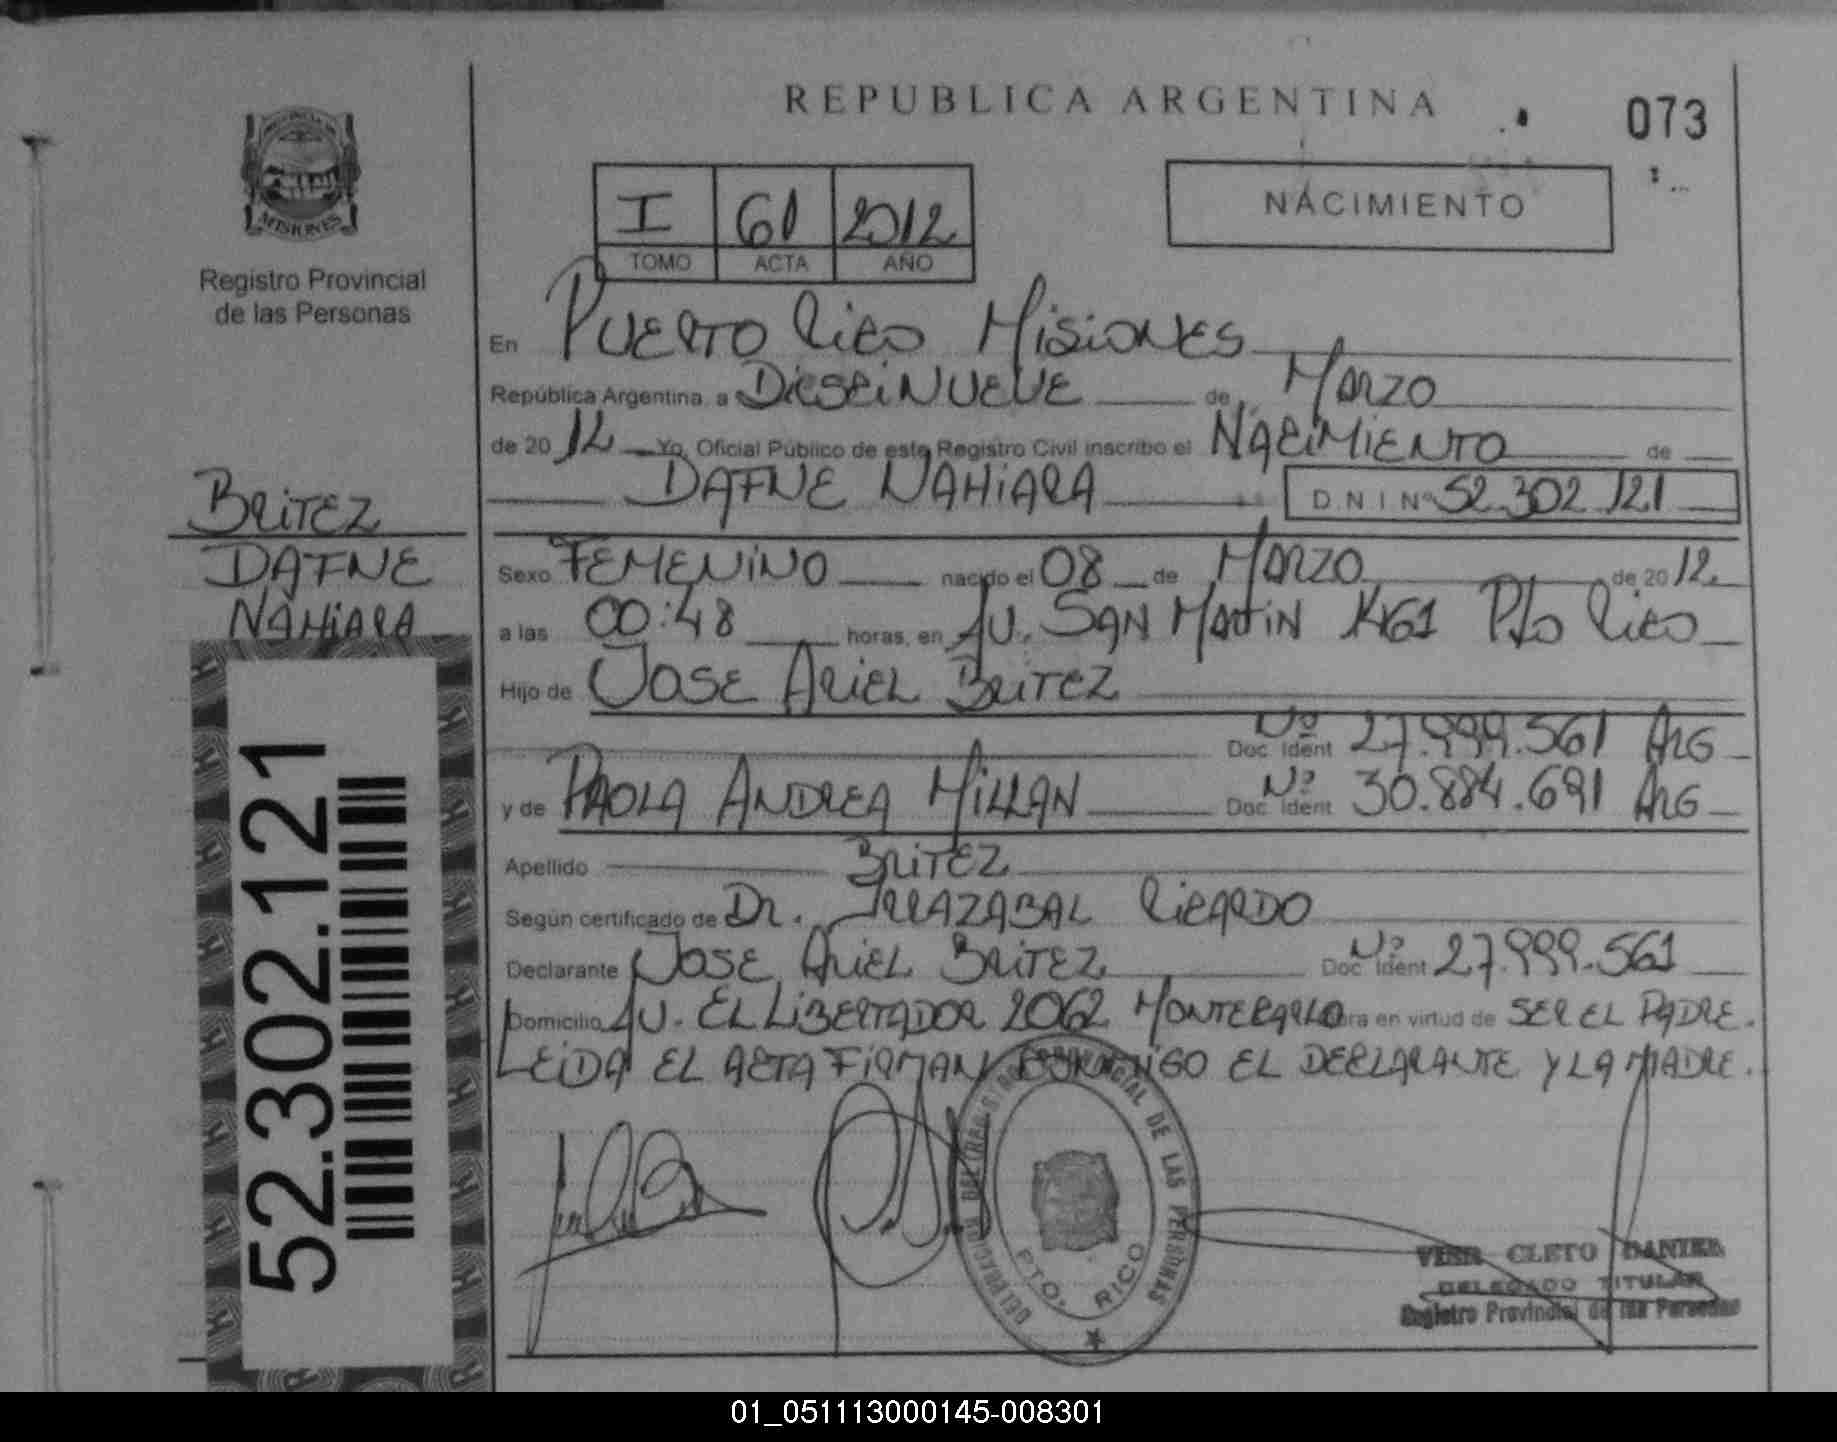 REPUBLICA ARGENTINA
073
MISIONES
Registro Provincial
de las Personas
I 61 2012
TOMO ACTA AÑO
NACIMIENTO
En PUERTO RICO MISIONES
República Argentina, a DIESEINUEVE de MARZO
de 2012 Yo, Oficial Público de este Registro Civil inscribo el NACIMIENTO de
DAFNE NAHIARA D.N.I Nº 52.302.121
BRITEZ
DAFNE
NAHIARA
Sexo FEMENINO nacido el 08 de MARZO de 2012
a las 00:48 horas, en AV. SAN MARTIN 1461 Pto RICO
Hijo de JOSE ARIEL BRITEZ
Doc Ident Nº 27.999.561 ARG
y de PAOLA ANDREA MILLAN Doc Ident Nº 30.884.691 ARG
Apellido BRITEZ
Según certificado de Dr. IRRAZABAL RICARDO
Declarante JOSE ARIEL BRITEZ Doc Ident Nº 27.999.561
Domicilio AV. EL LIBERTADOR 2062 MONTECARLO bra en virtud de SER EL PADRE.
LEIDA EL ACTA FIRMAN CONMIGO EL DECLARANTE Y LA MADRE.
52.302.121
PROVINCIAL DE LAS PERSONAS
PTO. RICO
CLETO DANIEL
DELEGADO TITULAR
Registro Provincial de las Personas
01_051113000145-008301